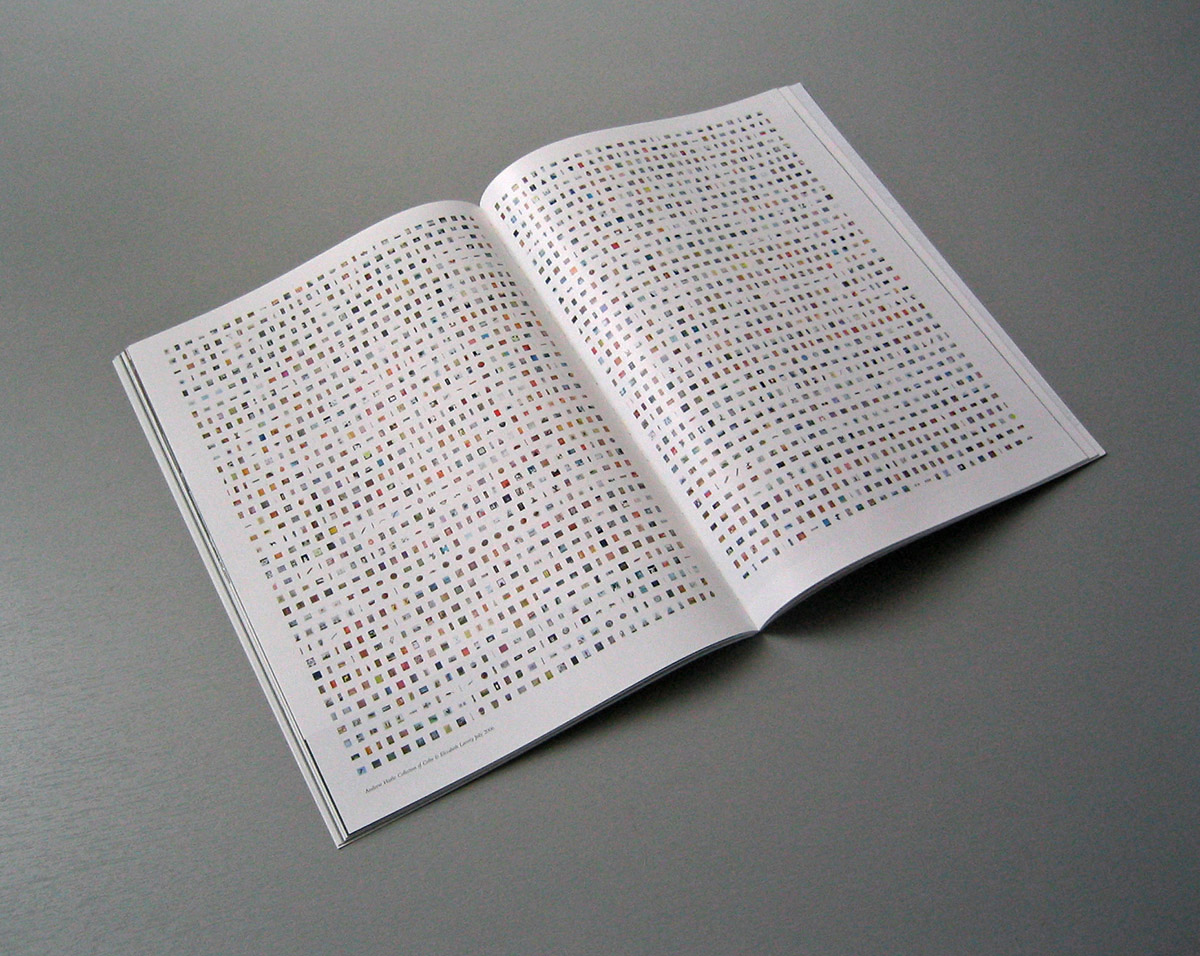 Andrew Vialle Collection of Colin & Elizabeth Laverty July 2006